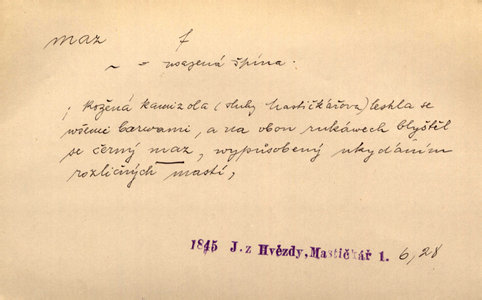 maz f
~ = usazená špína.
; Kožená kamizola (sluhy mastičkářova) leskla se
všemi barwami, a na obou rukáwech blyštěl
se černý maz, wypůsobený ukydáním
rozličných mastí,
1845 J. z Hvězdy, Mastičkář 1. 6,28